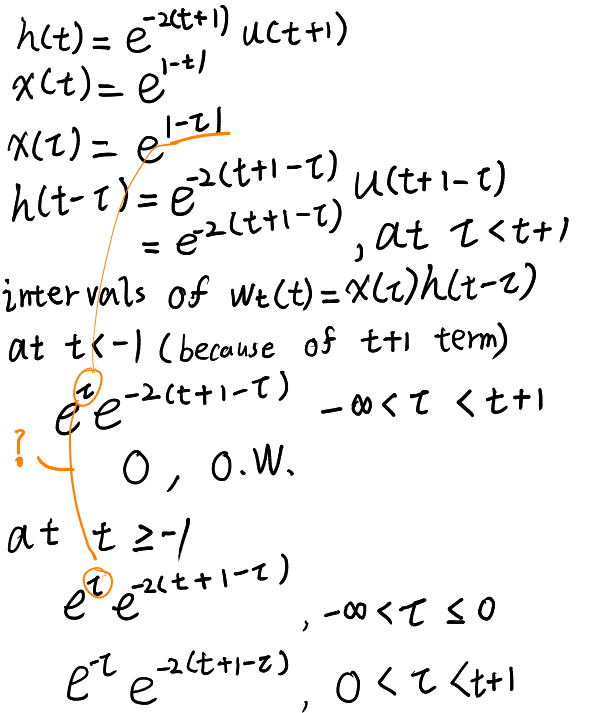 h(t) = e^{-2(t+1)} u(t+1)
x(t) = e^{|-t|}
x(τ) = e^{|-τ|}
h(t-τ) = e^{-2(t+1-τ)} u(t+1-τ)
= e^{-2(t+1-τ)}, at τ < t+1
intervals of w_t(t) = x(τ)h(t-τ)
at t < -1 (because of t+1 term)
e^{τ} e^{-2(t+1-τ)} -∞ < τ < t+1
?
0, O.W.
at t ≥ -1
e^{τ} e^{-2(t+1-τ)}, -∞ < τ ≤ 0
e^{-τ} e^{-2(t+1-τ)}, 0 < τ < t+1